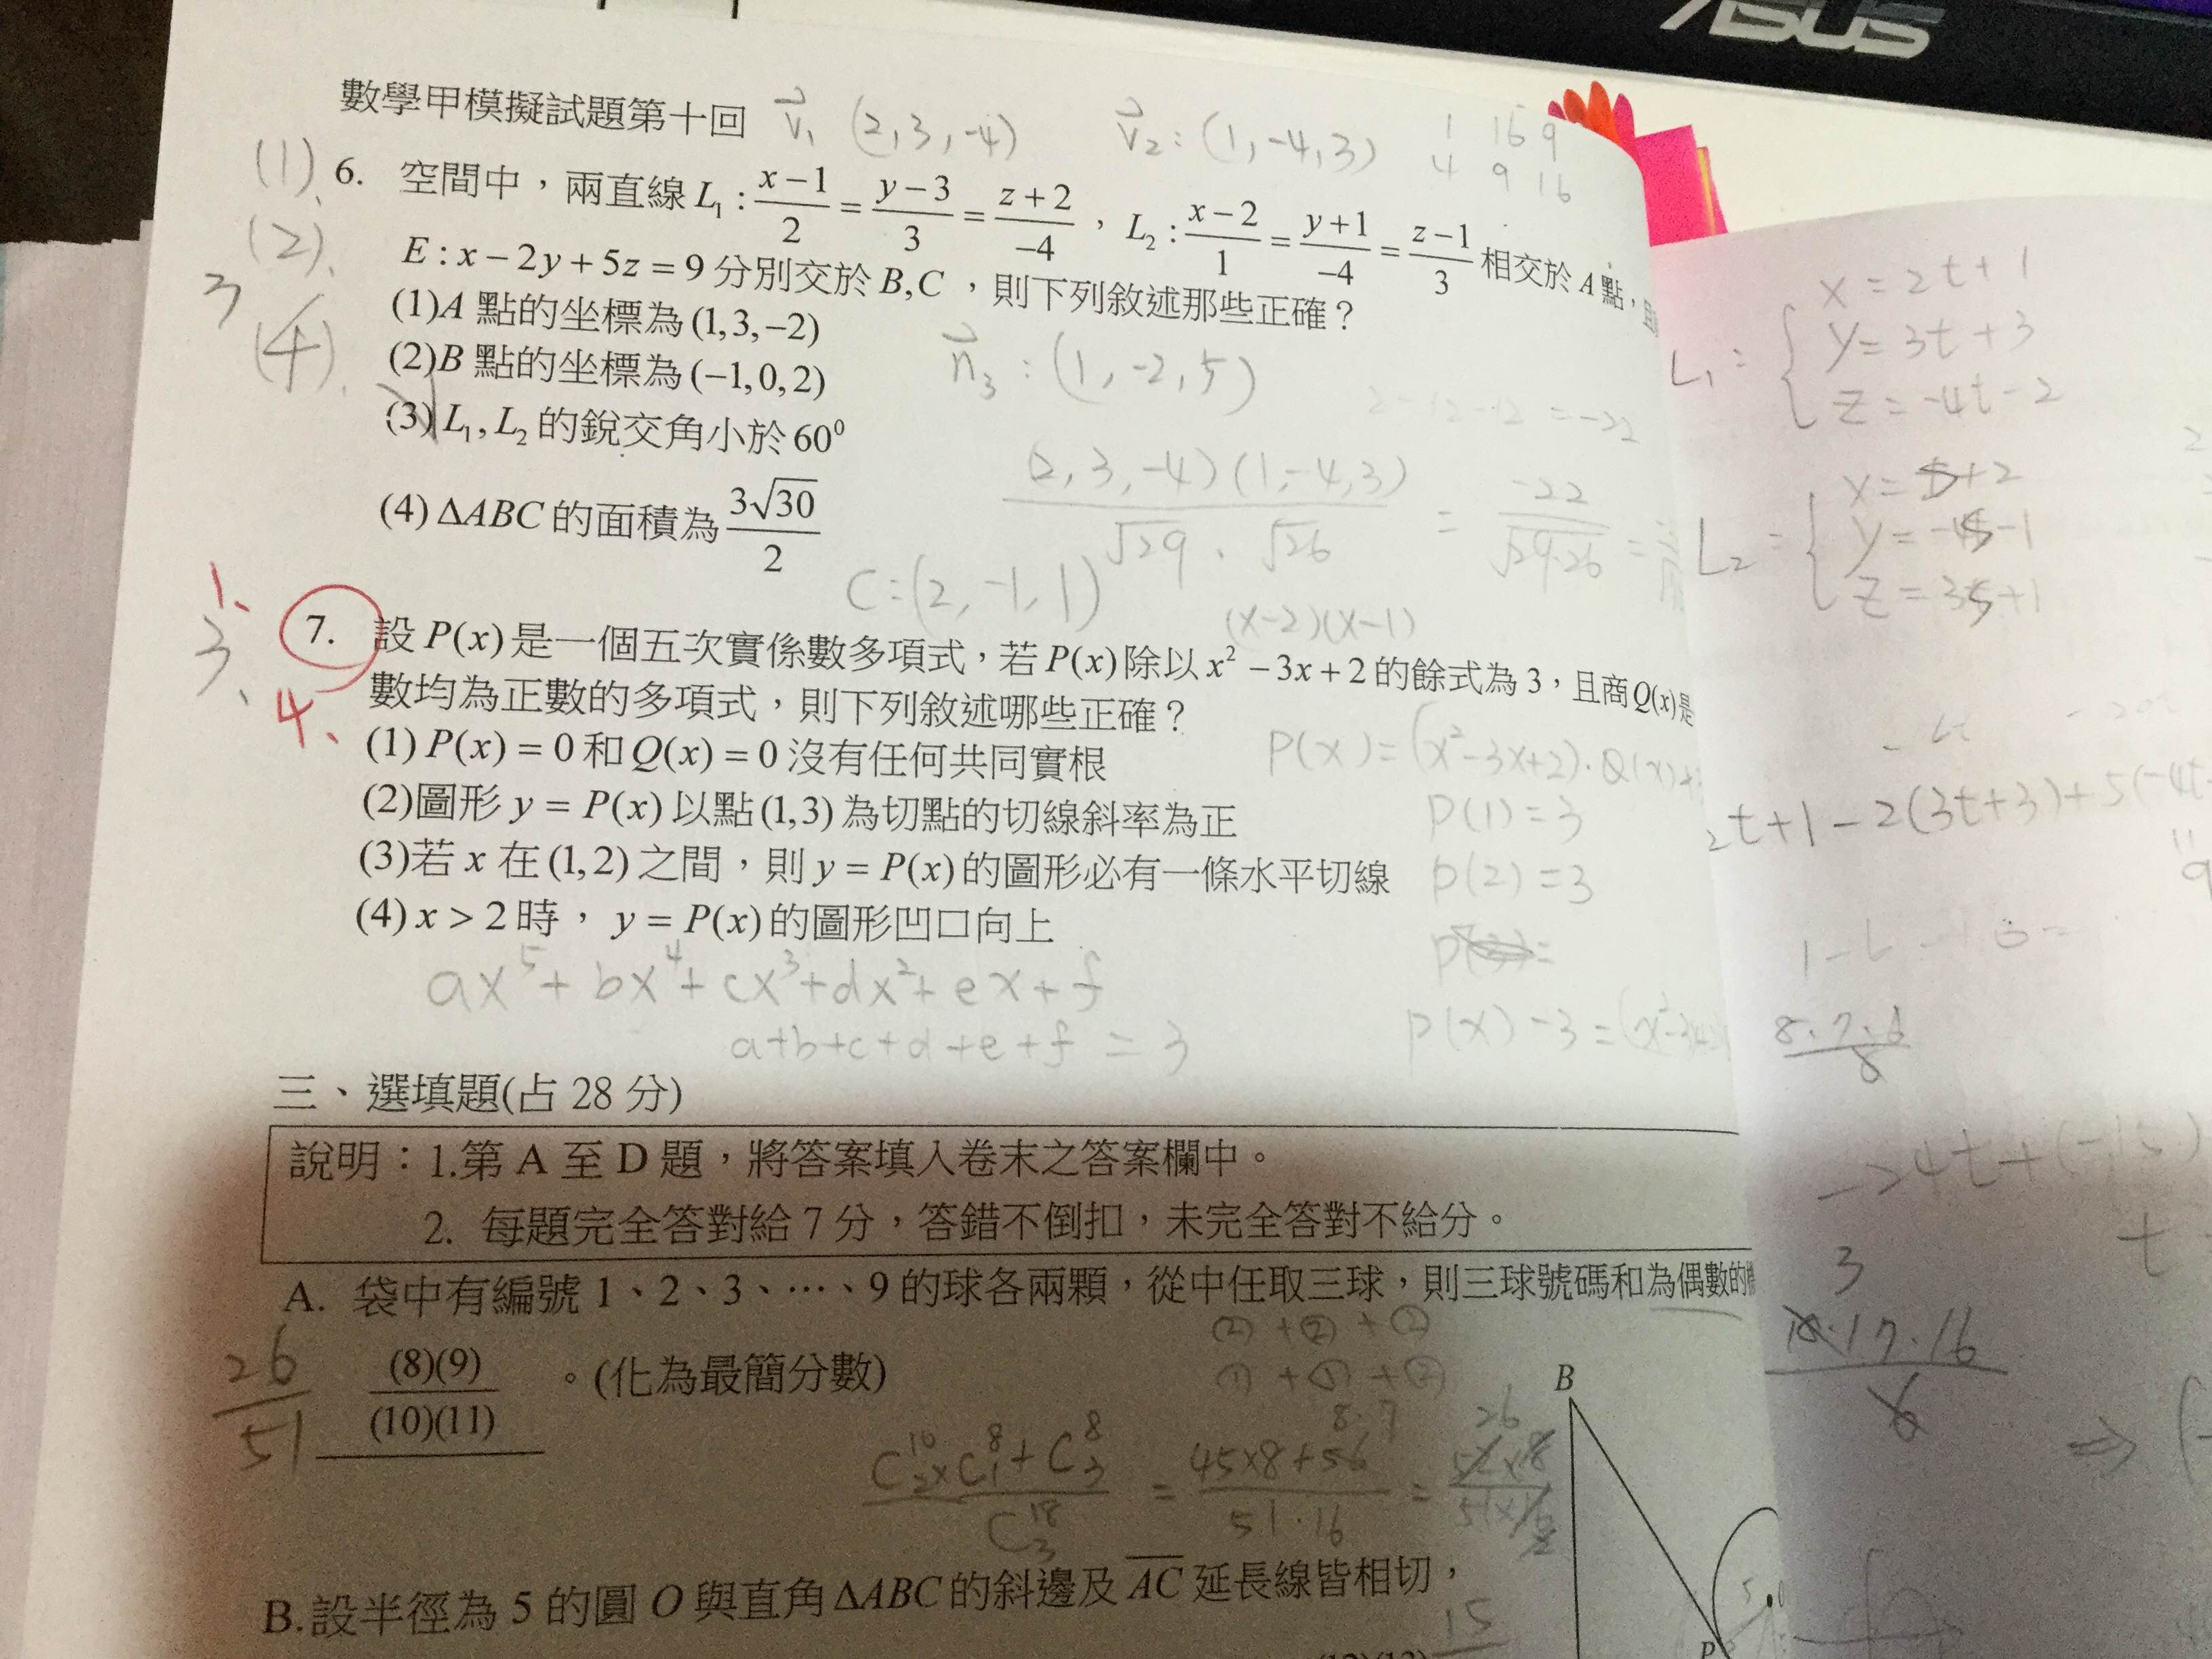 ASUS
數學甲模擬試題第十回 v₁ (2,3,-4) v₂:(1,-4,3) 1 16 9
4 9 16
(1)、
(2)、
3
(4)、
6. 空間中，兩直線 L₁ : (x-1)/2 = (y-3)/3 = (z+2)/-4 ， L₂ : (x-2)/1 = (y+1)/-4 = (z-1)/3 相交於 A 點，且
E : x-2y+5z=9 分別交於 B,C ，則下列敘述那些正確？
(1)A 點的坐標為 (1,3,-2)
(2)B 點的坐標為 (-1,0,2)
n₃ : (1,-2,5)
(3) L₁, L₂ 的銳交角小於 60⁰
2-12-12 = -22
(4) ΔABC 的面積為 3√30/2
(2,3,-4)(1,-4,3) / √29 · √26 = -22 / √29·26 =
C:(2,-1,1)
(x-2)(x-1)
1、
3、
4、
7. 設 P(x) 是一個五次實係數多項式，若 P(x) 除以 x²-3x+2 的餘式為 3，且商 Q(x) 是
數均為正數的多項式，則下列敘述哪些正確？
(1) P(x)=0 和 Q(x)=0 沒有任何共同實根
P(x)=(x²-3x+2)·Q(x)+
(2)圖形 y=P(x) 以點 (1,3) 為切點的切線斜率為正
P(1)=3
(3)若 x 在 (1,2) 之間，則 y=P(x) 的圖形必有一條水平切線
P(2)=3
(4) x>2 時， y=P(x) 的圖形凹口向上
ax⁵+bx⁴+cx³+dx²+ex+f
a+b+c+d+e+f = 3
P(x)-3=
三、選填題(占 28 分)
說明：1.第 A 至 D 題，將答案填入卷末之答案欄中。
2. 每題完全答對給 7 分，答錯不倒扣，未完全答對不給分。
A. 袋中有編號 1、2、3、…、9 的球各兩顆，從中任取三球，則三球號碼和為偶數的機
② + ② + ②
① + ① + ②
26/51
(8)(9)/(10)(11) 。(化為最簡分數)
8·7
26
C¹⁰₂×C⁸₁+C⁸₃ / C¹⁸₃ = 45×8+56 / 51·16 = 52×8 / 51×16
2
B
B.設半徑為 5 的圓 O 與直角 ΔABC 的斜邊及 AC 延長線皆相切，
15
P
5
L₁ = { x=2t+1
y=3t+3
z=-4t-2
L₂ = { x=s+2
y=-4s-1
z=3s+1
2t+1-2(3t+3)+5(-4t-
"
9
8·7·6
8
-24t+(-15)
t
3
18·17·16
6
⇒